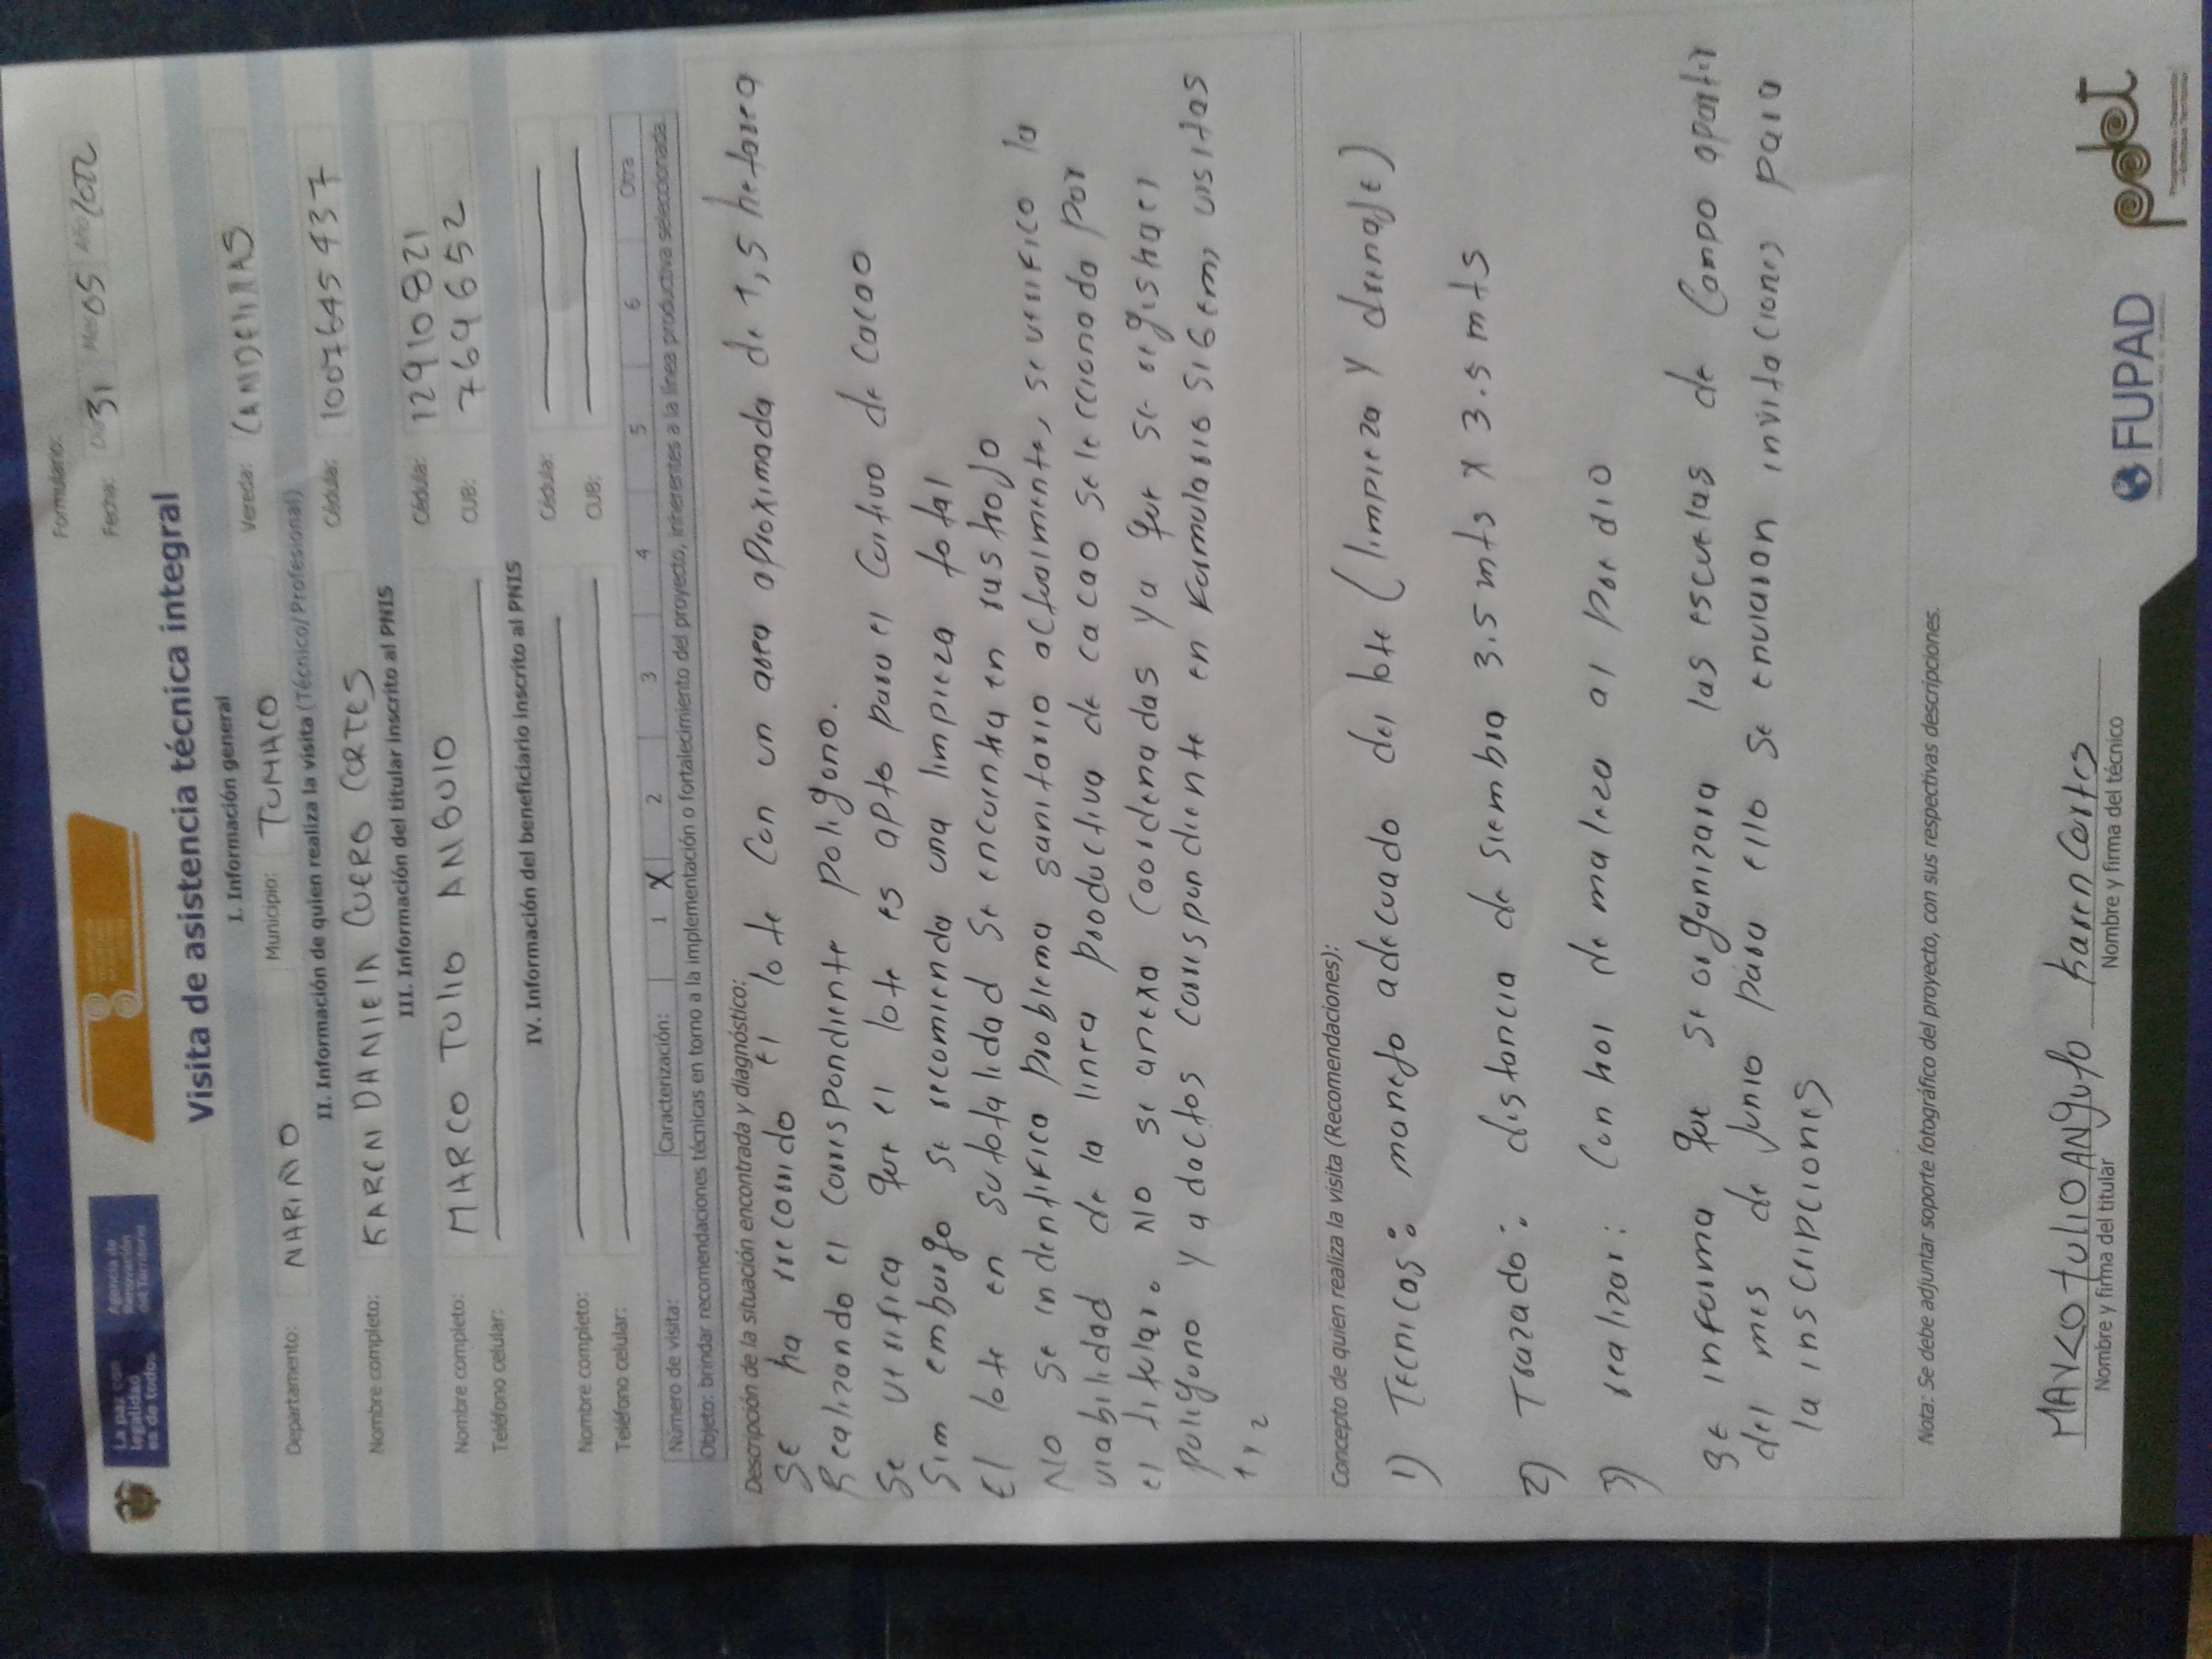 La paz con
legalidad
es de todos
Agencia de
Renovación
del Territorio
Formulario:
Fecha: Día 31 Mes 05 Año 2022
Visita de asistencia técnica integral
I. Información general
Departamento: NARIÑO Municipio: TUMACO Vereda: CANDELILLAS
II. Información de quien realiza la visita (Técnico/Profesional)
Nombre completo: KAREN DANIELA CUERO CORTES Cédula: 1007645437
III. Información del titular inscrito al PNIS
Nombre completo: MARCO TULIO ANGULO Cédula: 12910821
Teléfono celular: CUB: 7646 52
IV. Información del beneficiario inscrito al PNIS
Nombre completo: Cédula:
Teléfono celular: CUB:
Número de visita: Caracterización: 1 X 2 3 4 5 6 Otra
Objeto: brindar recomendaciones técnicas en torno a la implementación o fortalecimiento del proyecto, inherentes a la línea productiva seleccionada.
Descripción de la situación encontrada y diagnóstico:
Se ha recorrido El lote Con un area aproximada de 1,5 hetarea
Realizando el correspondiente poligono.
Se verifica que el lote es apto para el Cultivo de Cacao
Sim embargo se recomienda una limpieza total
El lote en sutotalidad se encuentra en rastrojo
No se indentifica problema sanitario actualmente, se verifico la
viabilidad de la linea productiva de cacao seleccionada por
el titular. No se anexa coordenadas ya que se registra el
poligono y a dactos correspondiente en formulario SIGEM, visitas
1 y 2
Concepto de quien realiza la visita (Recomendaciones):
1) Tecnicas: manejo adecuado del lote (limpieza y drenaje)
2) Trazado: distancia de siembra 3.5 mts x 3.5 mts
3) realizar: Control de maleza al por dio
Se informa que se organizara las escuelas de Campo apartir
del mes de Junio para ello se enviaron invitaciones para
la inscripciones
Nota: Se debe adjuntar soporte fotográfico del proyecto, con sus respectivas descripciones.
MARCO TULIO ANGULO Karen Cortes
Nombre y firma del titular Nombre y firma del técnico
FUPAD
pdet